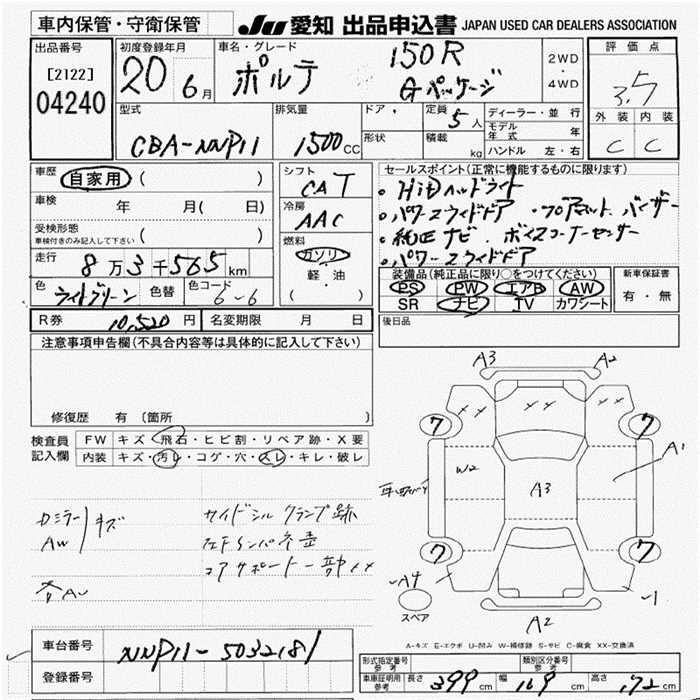 車内保管・守衛保管
JU 愛知 出品申込書 JAPAN USED CAR DEALERS ASSOCIATION
出品番号
[2122]
04240
初度登録年月
20 6月
車名・グレード
ポルテ
150R
Gパッケージ
2WD
・
4WD
評価点
3.5
外装 内装
C C
型式
CBA-NNP11
排気量
1500CC
ドア
形状
定員 5人
積載 kg
ディーラー・並行
モデル年式 年
ハンドル 左・右
車歴 自家用 ( )
車検 年 月( 日)
受検形態
車検付きのみ記入して下さい ( )
走行 8万3千565km
色 ライトグリーン 色替 色コード 6-6
R券 10,520円 名変期限 月 日
シフト
CAT
冷房
AAC
燃料
ガソリン
軽・油
( )
セールスポイント(正常に機能するものに限ります)
・HiDヘッドライト
・パワースライドドア ・バイザー
・純正ナビ
・パワースライドドア
装備品(純正品に限り○をつけてください)
PS PW エアB AW
SR ナビ TV カワシート
新車保証書
有・無
後日品
注意事項申告欄(不具合内容等は具体的に記入して下さい)
修復歴 有 〔箇所
検査員記入欄
FW キズ・飛石・ヒビ割・リペア跡・X要
内装 キズ・汚レ・コゲ・穴・スレ・キレ・破レ
ドミラー キズ
AW
各AU
サイドシル クランプ跡
コアサポート一部xx
A3 A2
7 7
W2 A3 A1
7 7
A4
スペア
A2
A-キズ E-エクボ U-凹み W-補修跡 S-サビ C-腐食 XX-交換済
車台番号 NNP11-5032181
登録番号
形式指定番号 参考
類別区分番号 参考
車庫証明用 参考 長さ 399cm 幅 169cm 高さ 172cm